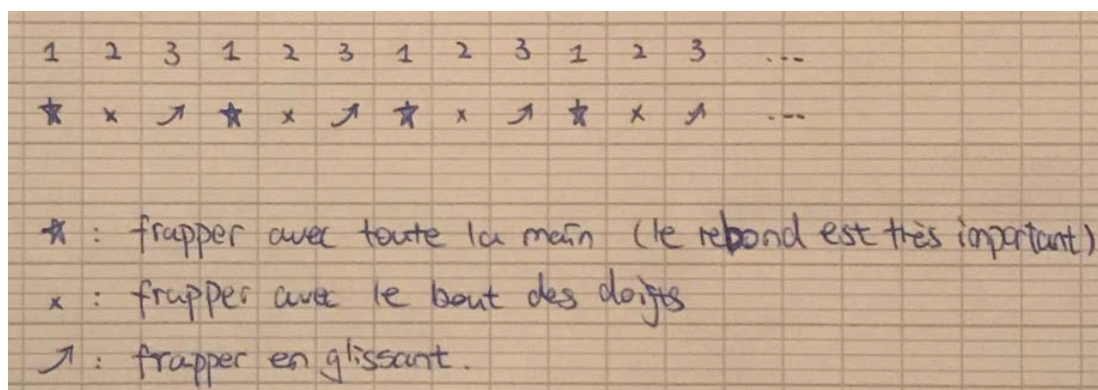 1 2 3 1 2 3 1 2 3 1 2 3 ...
☆ x ↗ ☆ x ↗ ☆ x ↗ ☆ x ↗ ...
☆ : frapper avec toute la main (le rebond est très important)
x : frapper avec le bout des doigts
↗ : frapper en glissant.